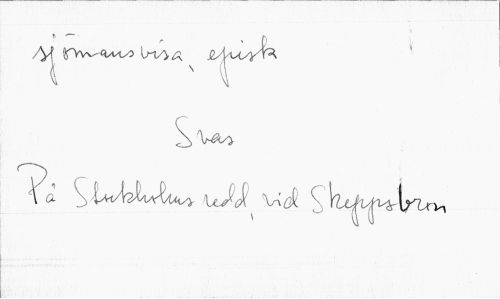 sjömansvisa, episk
Svas
På Stockholms redd, vid Skeppsbron